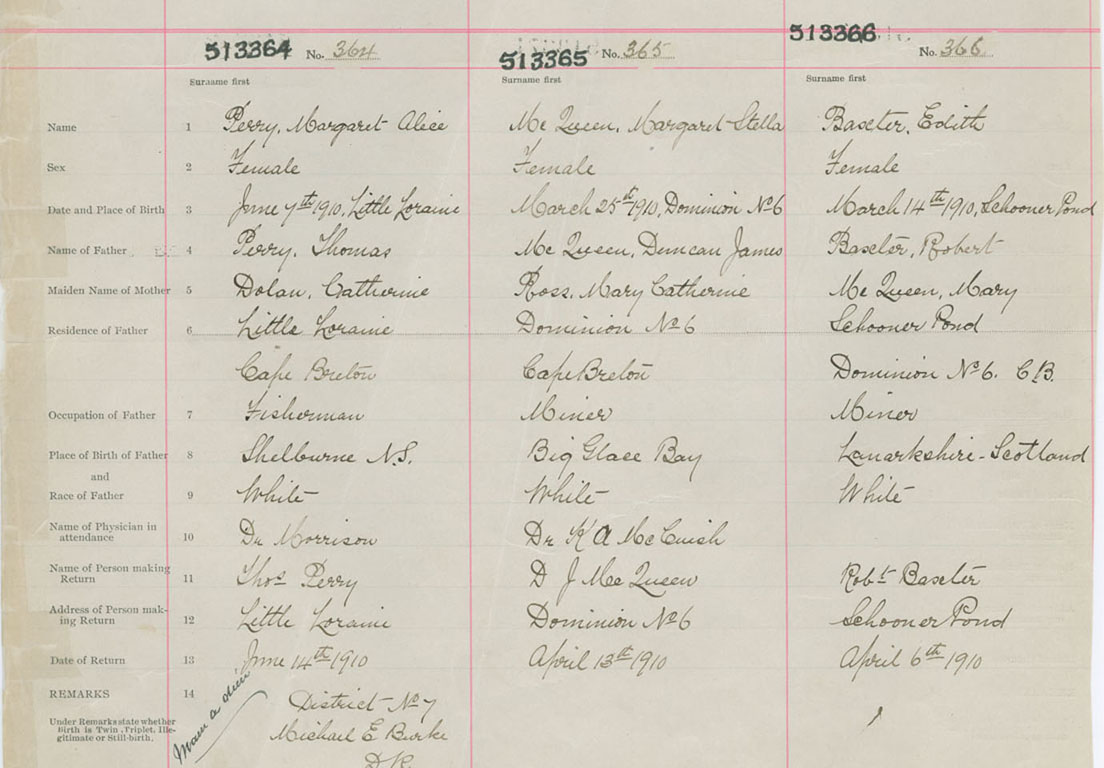 513364 No. 364 513365 No. 365 513366 No. 366
Surname first Surname first Surname first
Name 1 Perry, Margaret Alice Mc Queen, Margaret Stella Baxter, Edith
Sex 2 Female Female Female
Date and Place of Birth 3 June 7th 1910, Little Loraine March 25th 1910, Dominion No 6 March 14th 1910, Schooner Pond
Name of Father 4 Perry, Thomas Mc Queen, Duncan James Baxter, Robert
Maiden Name of Mother 5 Dolan, Catherine Ross, Mary Catherine Mc Queen, Mary
Residence of Father 6 Little Loraine Dominion No 6 Schooner Pond
Cape Breton Cape Breton Dominion No 6. C.B.
Occupation of Father 7 Fisherman Miner Miner
Place of Birth of Father 8 Shelburne N.S. Big Glace Bay Lanarkshire - Scotland
and
Race of Father 9 White White White
Name of Physician in
attendance 10 Dr Morrison Dr K A McCuish
Name of Person making
Return 11 Thos Perry D J Mc Queen Robt Baxter
Address of Person mak-
ing Return 12 Little Loraine Dominion No 6 Schooner Pond
Date of Return 13 June 14th 1910 April 13th 1910 April 6th 1910
REMARKS 14 District No 7
Under Remarks state whether
Birth is Twin, Triplet, Ille-
gitimate or Still-birth.
Michael E Burke
D.R.